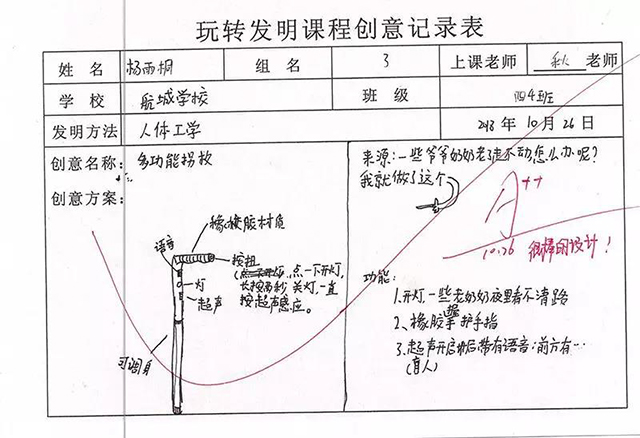 玩转发明课程创意记录表
姓 名 杨雨桐 组 名 3 上课老师 秋 老师
学 校 航城学校 班 级 四4班
发明方法 人体工学 年 10 月 26 日
创意名称: 多功能拐杖
创意方案:
橡胶材质
语音
按扭
点一下开灯,
灯
长按两秒关灯,一直
超声
按超声感应。
可调身
来源:一些爷爷奶奶老走不动怎么办呢?
我就做了这个
A++
10.26 很棒的设计!
功能:
1.开灯一些老奶奶夜里看不清路
2、橡胶 护手指
3.超声开启 后带有语音:前方有…
(盲人)